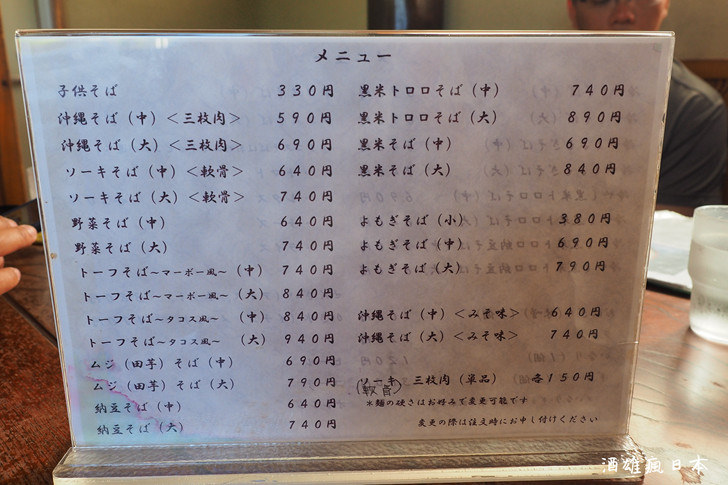 メニュー
子供そば 330円
沖縄そば（中）＜三枚肉＞ 590円
沖縄そば（大）＜三枚肉＞ 690円
ソーキそば（中）＜軟骨＞ 640円
ソーキそば（大）＜軟骨＞ 740円
野菜そば（中） 640円
野菜そば（大） 740円
トーフそば～マーボー風～（中） 740円
トーフそば～マーボー風～（大） 840円
トーフそば～タコス風～（中） 840円
トーフそば～タコス風～（大） 940円
ムジ（田芋）そば（中） 690円
ムジ（田芋）そば（大） 790円
納豆そば（中） 640円
納豆そば（大） 740円
黒米トロロそば（中） 740円
黒米トロロそば（大） 890円
黒米そば（中） 690円
黒米そば（大） 840円
よもぎそば（小） 380円
よもぎそば（中） 690円
よもぎそば（大） 790円
沖縄そば（中）＜みそ味＞ 640円
沖縄そば（大）＜みそ味＞ 740円
ソーキ 三枚肉（単品） 各150円
（軟骨）
＊麺の硬さはお好みで変更可能です
変更の際は注文時にお申し付けください
酒雄瘋日本